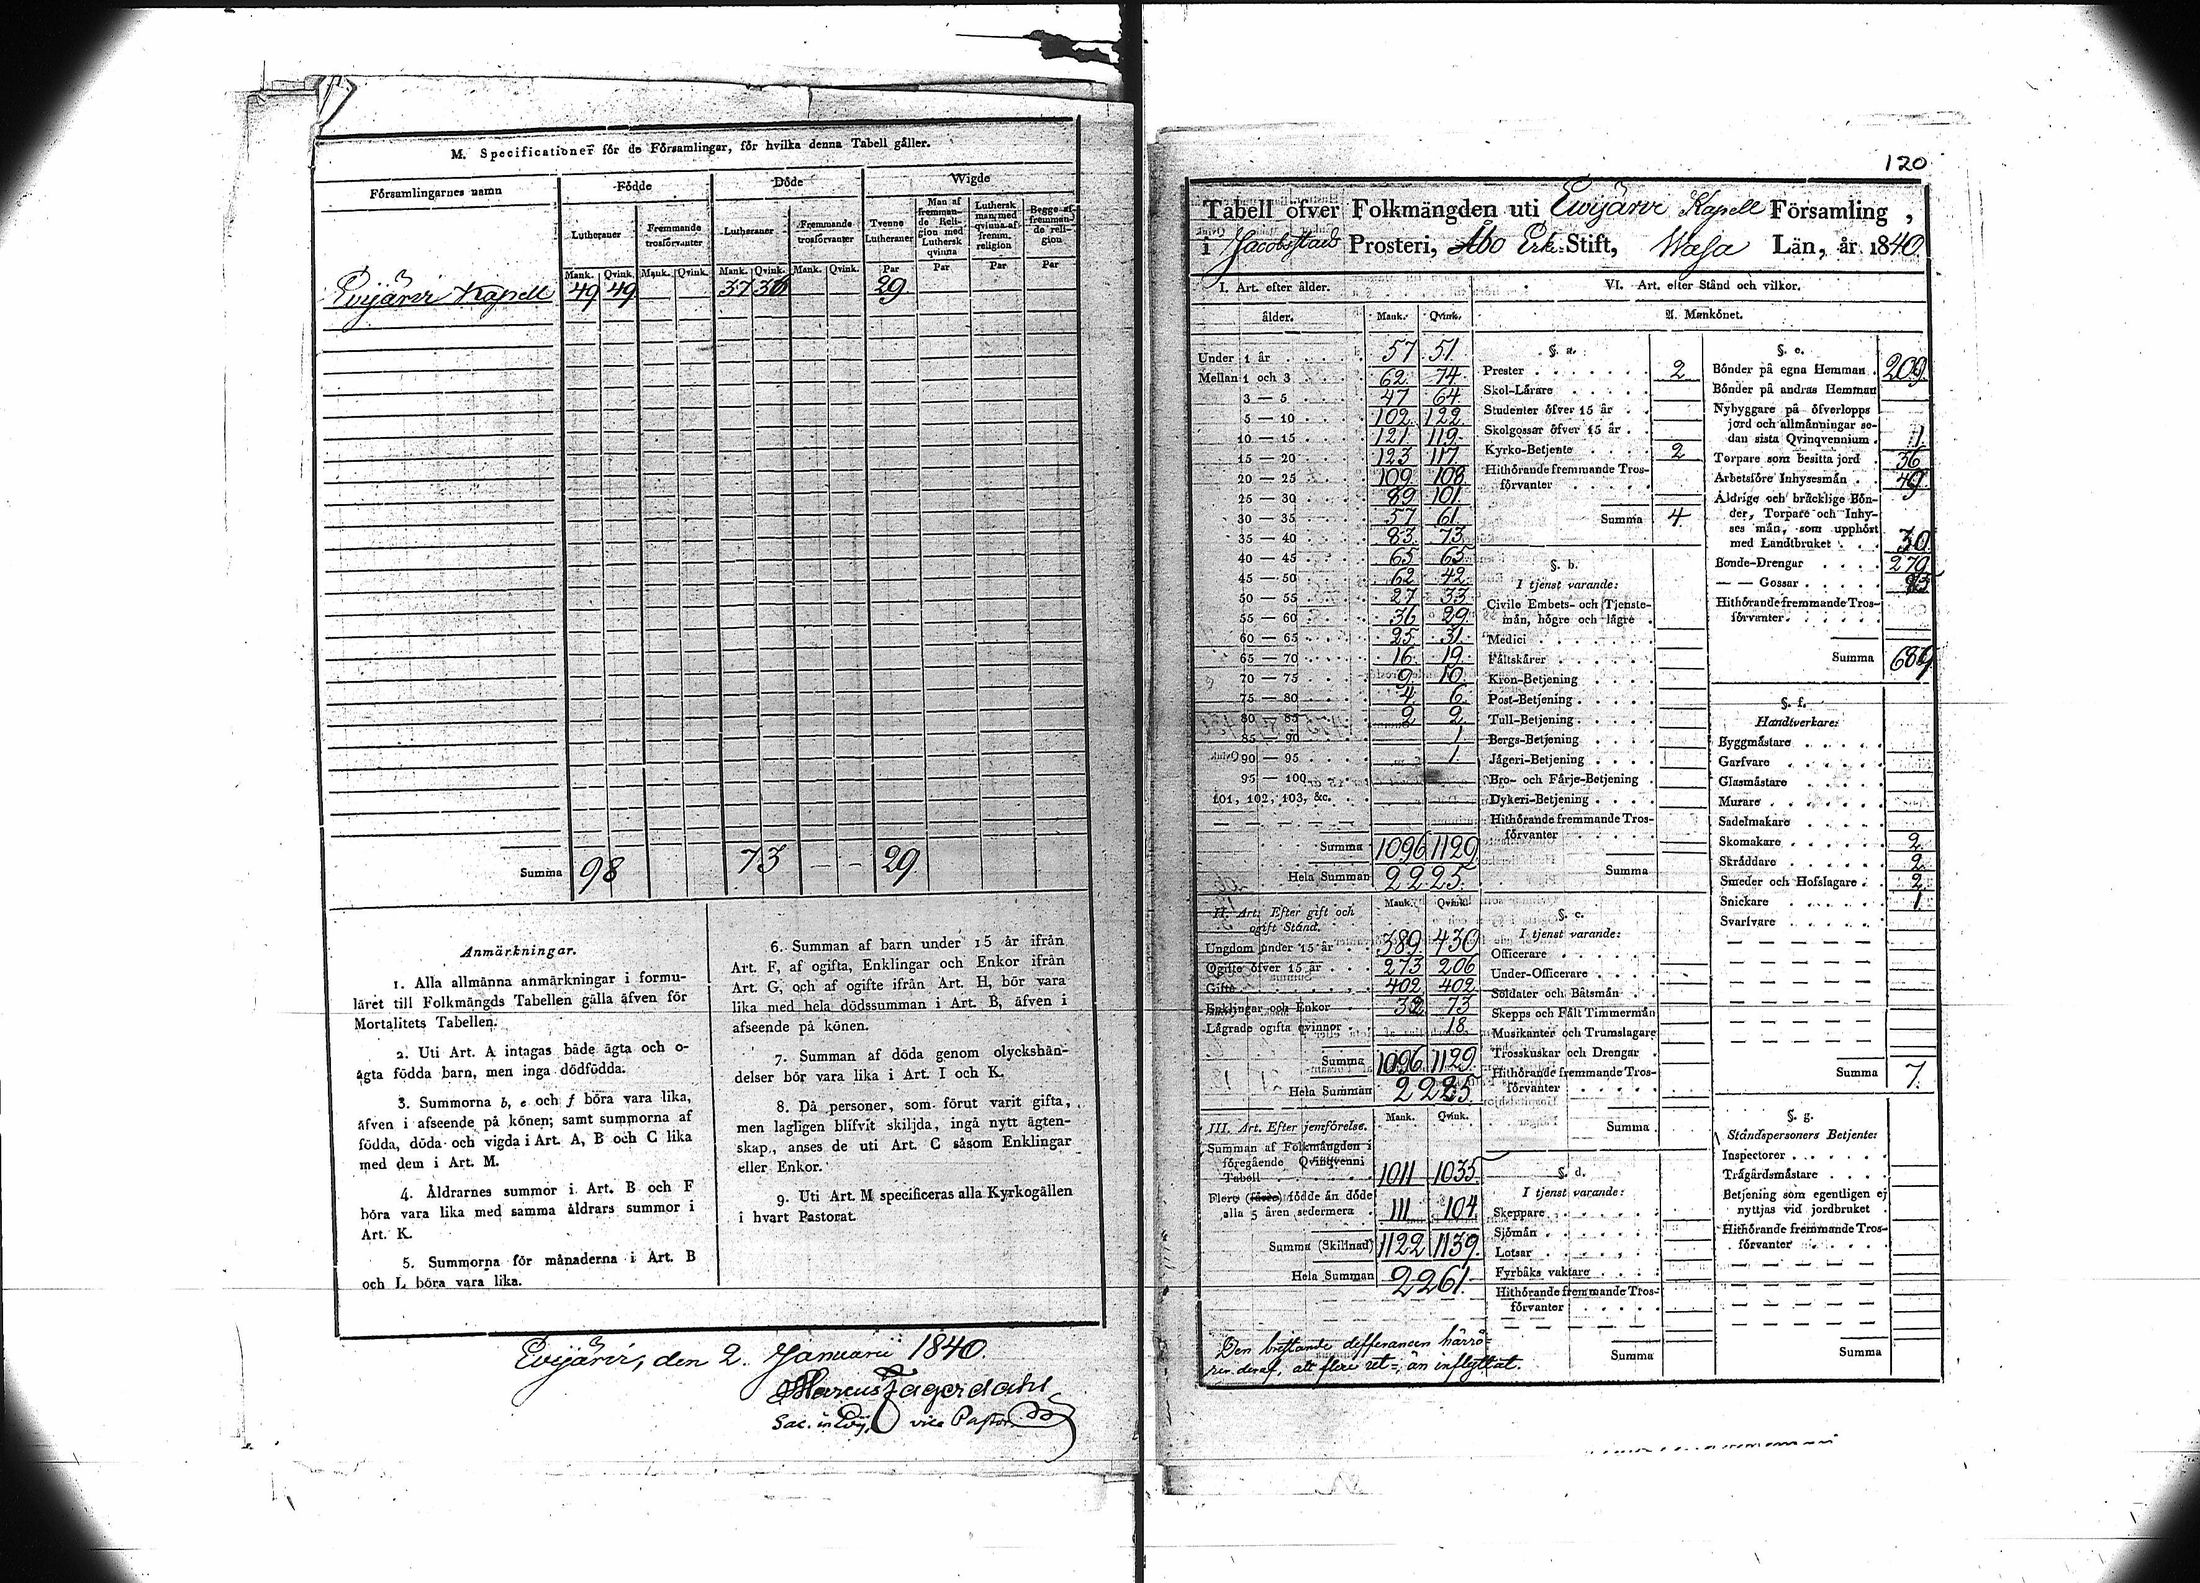 M. Specificationer för de Församlingar, för hvilka denna Tabell gäller.
Församlingarnes namn Födde Döde Wigde
Lutheraner Fremmande trosförvanter Lutheraner Fremmande trosförvanter Tvenne Lutheraner Man af fremmande Religion med Luthersk qvinna Luthersk man med qvinna af fremm. religion Begge af fremmande religion
Mank. Qvink. Mank. Qvink. Mank. Qvink. Mank. Qvink. Par Par Par Par
Evijärvi Kapell 49 49 37 36 29
Summa 98 73 — — 29
Anmärkningar.
1. Alla allmänna anmärkningar i formu-
läret till Folkmängds Tabellen gälla äfven för
Mortalitets Tabellen.
2. Uti Art. A intagas både ägta och o-
ägta födda barn, men inga dödfödda.
3. Summorna b, e och f böra vara lika,
äfven i afseende på könen; samt summorna af
födda, döda och vigda i Art. A, B och C lika
med dem i Art. M.
4. Åldrarnes summor i Art. B och F
böra vara lika med samma åldrars summor i
Art. K.
5. Summorna för månaderna i Art. B
och L böra vara lika.
6. Summan af barn under 15 år ifrån
Art. F, af ogifta, Enklingar och Enkor ifrån
Art. G, och af ogifte ifrån Art. H, bör vara
lika med hela dödssumman i Art. B, äfven i
afseende på könen.
7. Summan af döda genom olyckshän-
delser bör vara lika i Art. I och K.
8. Då personer, som förut varit gifta,
men lagligen blifvit skiljda, ingå nytt ägten-
skap, anses de uti Art. C såsom Enklingar
eller Enkor.
9. Uti Art. M specificeras alla Kyrkogällen
i hvart Pastorat.
Evijärvi, den 2. Januarii 1840.
Marcus Fagerdahl
Sac. in Evij. vice Pastor
120
Tabell öfver Folkmängden uti Ewijärvi Kapell Församling,
i Jacobstads Prosteri, Åbo Erke-Stift, Wasa Län, år 1840.
I. Art. efter ålder.
ålder. Mank. Qvink.
Under 1 år 57 51
Mellan 1 och 3 62 74
3 — 5 47 64
5 — 10 102 122
10 — 15 121 119
15 — 20 123 117
20 — 25 109 108
25 — 30 89 101
30 — 35 57 61
35 — 40 83 73
40 — 45 65 65
45 — 50 62 42
50 — 55 27 33
55 — 60 36 29
60 — 65 25 31
65 — 70 16 19
70 — 75 9 10
75 — 80 4 6
80 — 85 2 2
85 — 90 1
90 — 95 1
95 — 100
101, 102, 103, &c.
Summa 1096 1129
Hela Summan 2225
II. Art. Efter gift och ogift Stånd. Mank. Qvink.
Ungdom under 15 år 389 430
Ogifte öfver 15 år 273 206
Gifte 402 402
Enklingar och Enkor 32 73
Lägrade ogifta qvinnor 18
Summa 1096 1129
Hela Summan 2225
III. Art. Efter jemförelse. Mank. Qvink.
Summan af Folkmängden i
föregående Qvinqvenni
Tabell 1011 1035
Flere (färre) födde än döde
alla 5 åren sedermera 111 104
Summa (Skillnad) 1122 1139
Hela Summan 2261
Den beftande defferancen härrö-
rer deraf, att flere ut-, än inflyttat.
VI. Art. efter Stånd och vilkor.
A. Mankönet.
§. a.
Prester 2
Skol-Lärare
Studenter öfver 15 år
Skolgossar öfver 15 år
Kyrko-Betjente 2
Hithörande fremmande Tros-
förvanter
Summa 4
§. b.
I tjenst varande:
Civile Embets- och Tjenste-
män, högre och lägre
Medici
Fältskärer
Kron-Betjening
Post-Betjening
Tull-Betjening
Bergs-Betjening
Jägeri-Betjening
Bro- och Färje-Betjening
Dykeri-Betjening
Hithörande fremmande Tros-
förvanter
Summa
§. c.
I tjenst varande:
Officerare
Under-Officerare
Soldater och Båtsmän
Skepps och Fält Timmermän
Musikanter och Trumslagare
Trosskuskar och Drengar
Hithörande fremmande Tros-
förvanter
Summa
§. d.
I tjenst varande:
Skeppare
Sjömän
Lotsar
Fyrbåks vaktare
Hithörande fremmande Tros-
förvanter
Summa
§. e.
Bönder på egna Hemman 209
Bönder på andras Hemman
Nybyggare på öfverlopps
jord och allmänningar se-
dan sista Qvinqvennium 1
Torpare som besitta jord 36
Arbetsföre Inhysesmän 49
Åldrige och bräcklige Bön-
der, Torpare och Inhy-
ses män, som upphört
med Landtbruket 30
Bonde-Drengar 279
— — Gossar
Hithörande fremmande Tros-
förvanter
Summa 689
§. f.
Handtverkare:
Byggmästare
Garfvare
Glasmästare
Murare
Sadelmakare
Skomakare 2
Skräddare 2
Smeder och Hofslagare 2
Snickare 1
Svarfvare
Summa 7
§. g.
Ståndspersoners Betjente:
Inspectorer
Trägårdsmästare
Betjening som egentligen ej
nyttjas vid jordbruket
Hithörande fremmande Tros-
förvanter
Summa